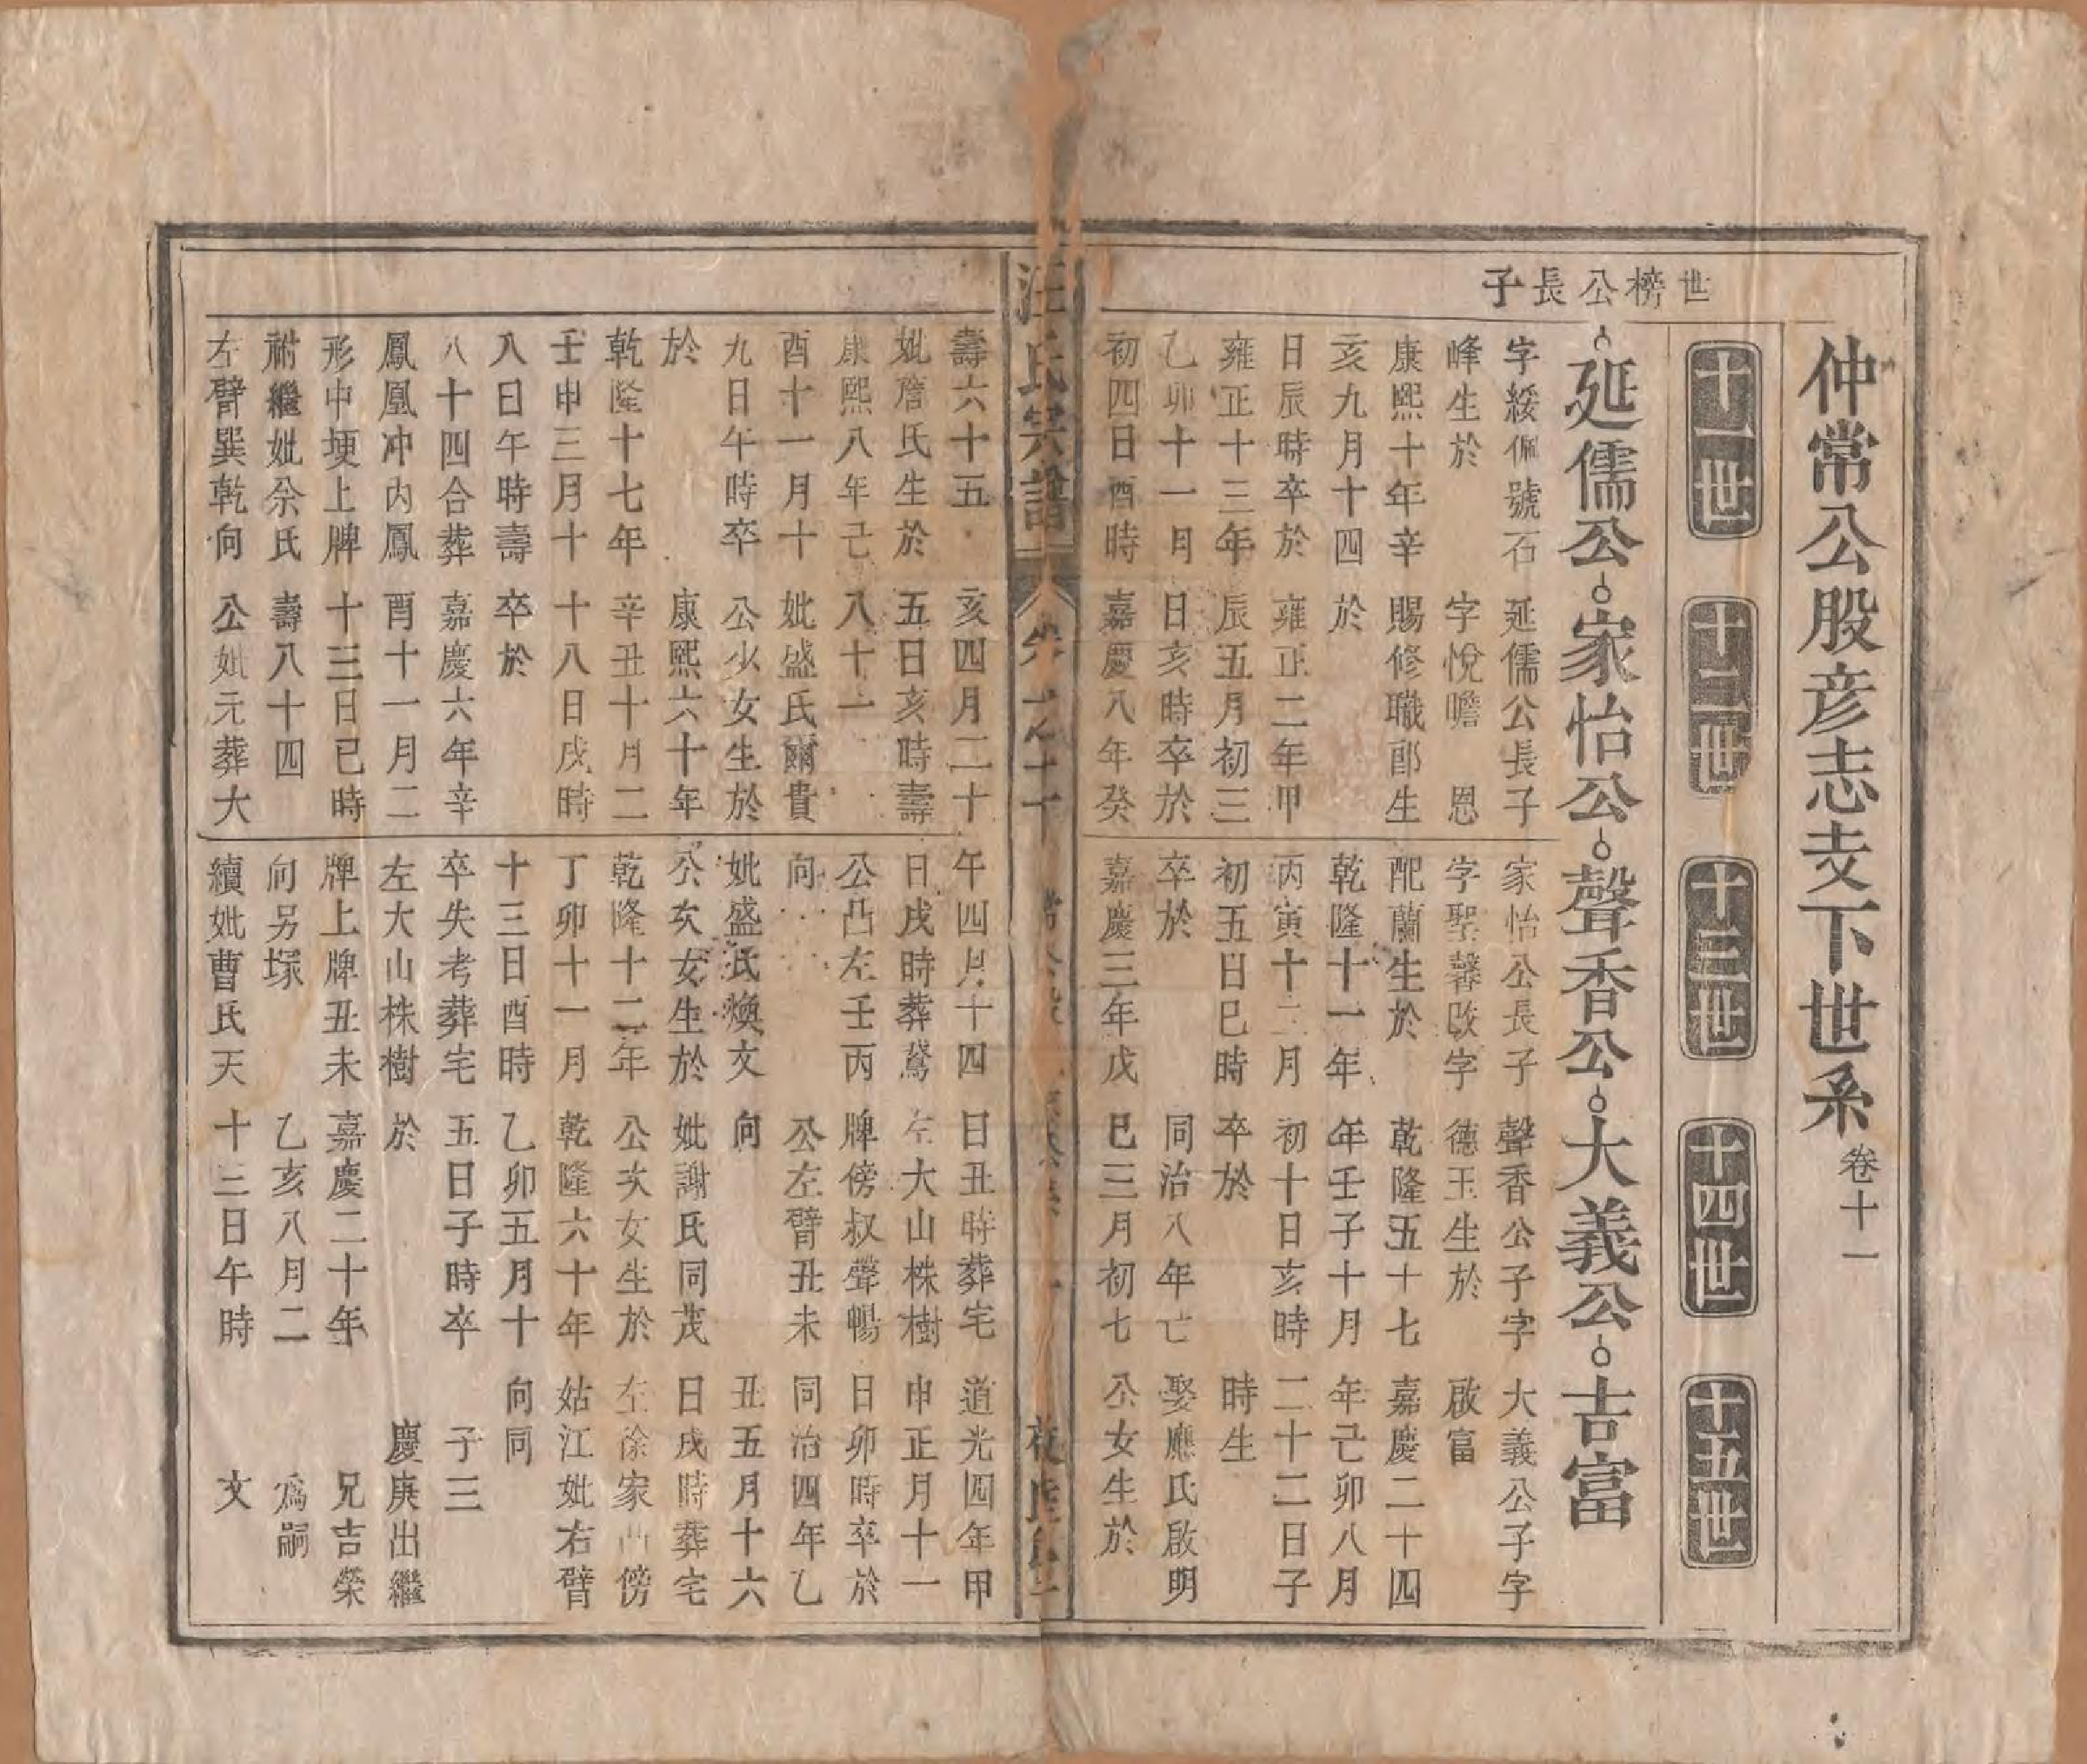 仲常公股彦志支下世系 卷十一
十一世
十二世
十三世
十四世
十五世
世榜公長子
延儒公 家怡公 聲香公 大義公 吉富
字綏佩號石
峰生於
康熙十年辛
亥九月十四
日辰時卒於
雍正十三年
乙卯十一月
初四日酉時
壽六十五
妣詹氏生於
康熙八年己
酉十一月十
九日午時卒
於
乾隆十七年
壬申三月十
八日午時壽
八十四合葬
鳳凰冲内鳳
形中埂上牌
祔繼妣佘氏
左臂巽乾向
延儒公長子
字悅瞻 恩
賜修職郎生
於
雍正二年甲
辰五月初三
日亥時卒於
嘉慶八年癸
亥四月二十
五日亥時壽
八十一
妣盛氏爾貴
公少女生於
康熙六十年
辛丑十月二
十八日戌時
卒於
嘉慶六年辛
酉十一月二
十三日巳時
壽八十四
公妣元葬大
家怡公長子
字聖馨改字
配蘭生於
乾隆十一年
丙寅十二月
初五日巳時
卒於
嘉慶三年戊
午四月十四
日戌時葬鴛
公凸左壬丙
向
妣盛氏煥文
公次女生於
乾隆十二年
丁卯十一月
十三日酉時
卒失考葬宅
左大山株樹
牌上牌丑未
向另塚
續妣曹氏天
聲香公子字
德玉生於
乾隆五十七
年壬子十月
初十日亥時
卒於
同治八年亡
巳三月初七
日丑時葬宅
左大山株樹
牌傍叔聲暢
公左臂丑未
向
妣謝氏同茂
公次女生於
乾隆六十年
乙卯五月十
五日子時卒
於
嘉慶二十年
乙亥八月二
十三日午時
大義公子字
啟富
嘉慶二十四
年己卯八月
二十二日子
時生
娶應氏啟明
公女生於
道光四年甲
申正月十一
日卯時卒於
同治四年乙
丑五月十六
日戌時葬宅
左徐家凸傍
姑江妣右臂
向同
子三
慶庚出繼
兄吉榮
爲嗣
文
汪氏宗譜 卷之十